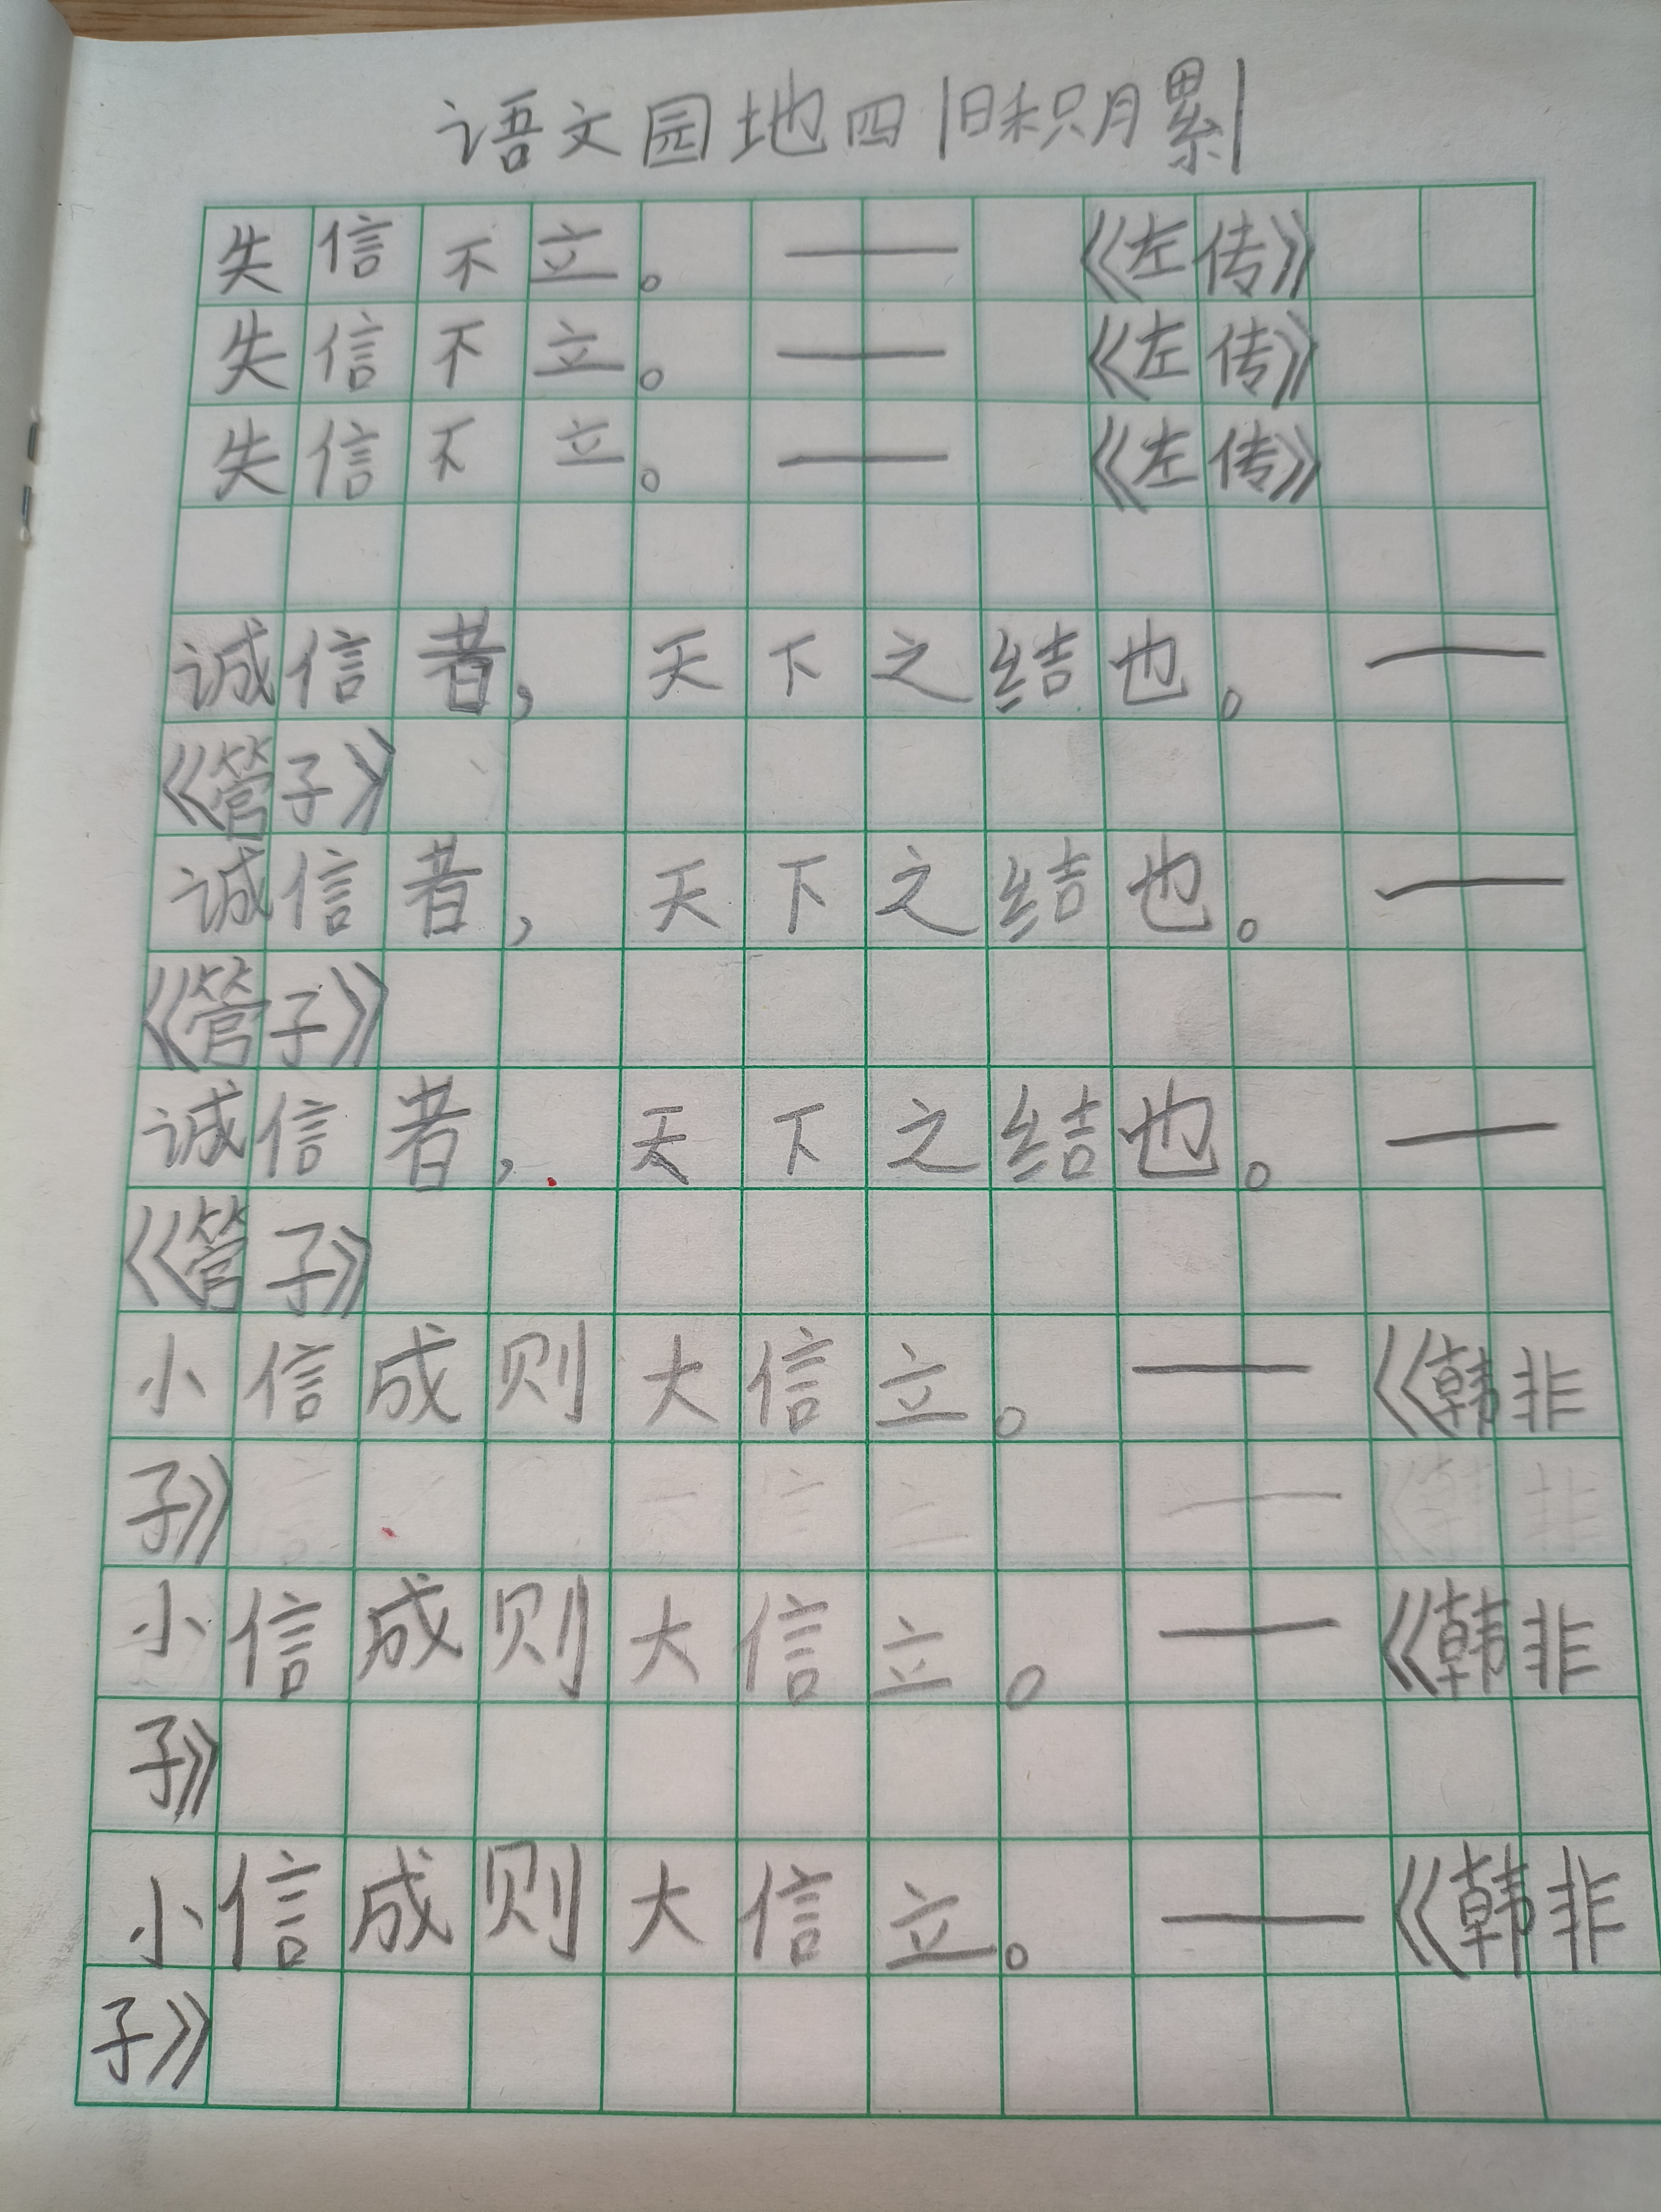 语文园地四|日积月累|
失信不立。——《左传》
失信不立。——《左传》
失信不立。——《左传》
诚信者,天下之结也。——
《管子》
诚信者,天下之结也。——
《管子》
诚信者,天下之结也。——
《管子》
小信成则大信立。——《韩非
子》
小信成则大信立。——《韩非
子》
小信成则大信立。——《韩非
子》